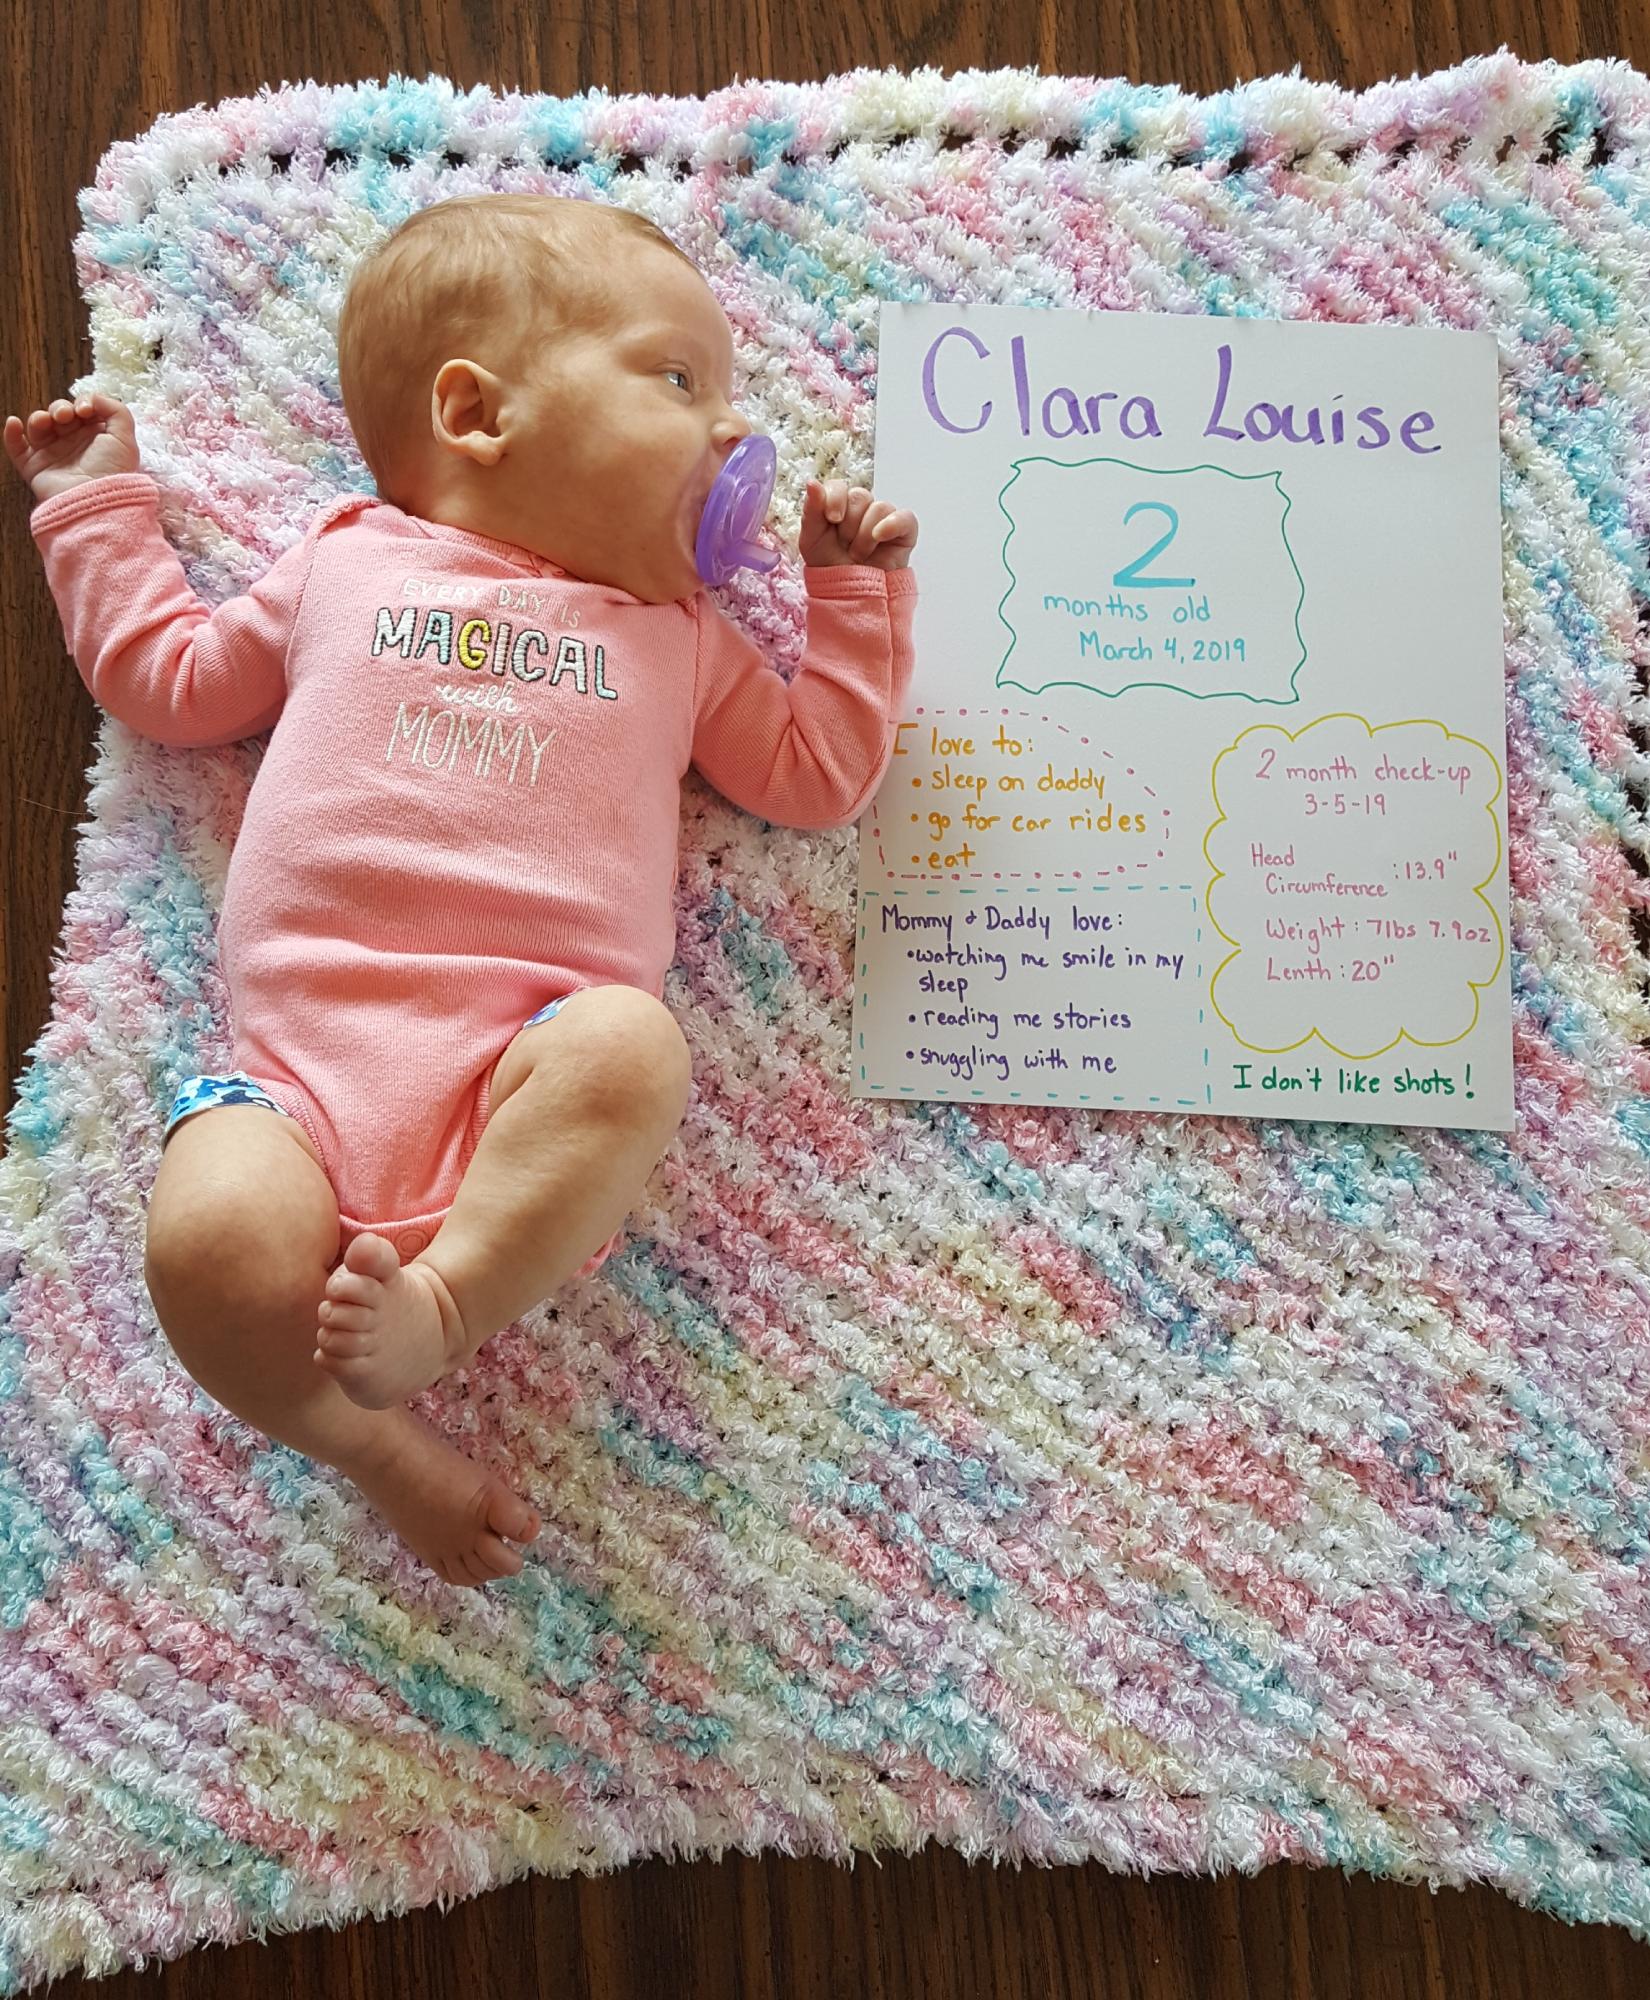 EVERY DAY IS
MAGICAL
with
MOMMY
Clara Louise
2
months old
March 4, 2019
I love to:
• sleep on daddy
• go for car rides
• eat
Mommy & Daddy love:
• watching me smile in my
sleep
• reading me stories
• snuggling with me
2 month check-up
3-5-19
Head
Circumference : 13.9"
Weight : 7lbs 7.9oz
Lenth : 20"
I don't like shots!